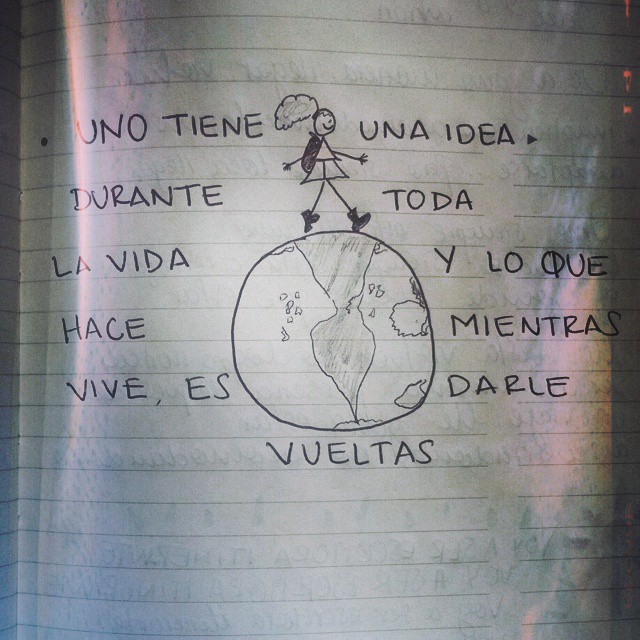 UNO TIENE UNA IDEA
DURANTE TODA
LA VIDA Y LO QUE
HACE MIENTRAS
VIVE, ES DARLE
VUELTAS